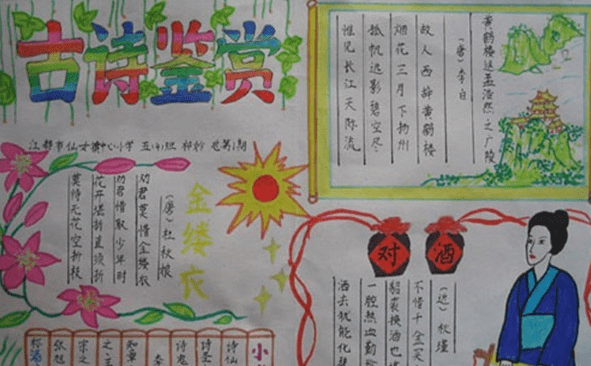 古诗鉴赏
江都市仙女镇中心小学 五(4)班
黄鹤楼送孟浩然之广陵
(唐) 李白
故人西辞黄鹤楼
烟花三月下扬州
孤帆远影碧空尽
惟见长江天际流
金缕衣
(唐) 杜秋娘
劝君莫惜金缕衣
劝君惜取少年时
花开堪折直须折
莫待无花空折枝
对酒
(近) 秋瑾
不惜千金买
貂裘换酒也
一腔热血勤
洒去犹能化
小
诗仙
诗圣
诗鬼
知章
之王
宋之
张旭